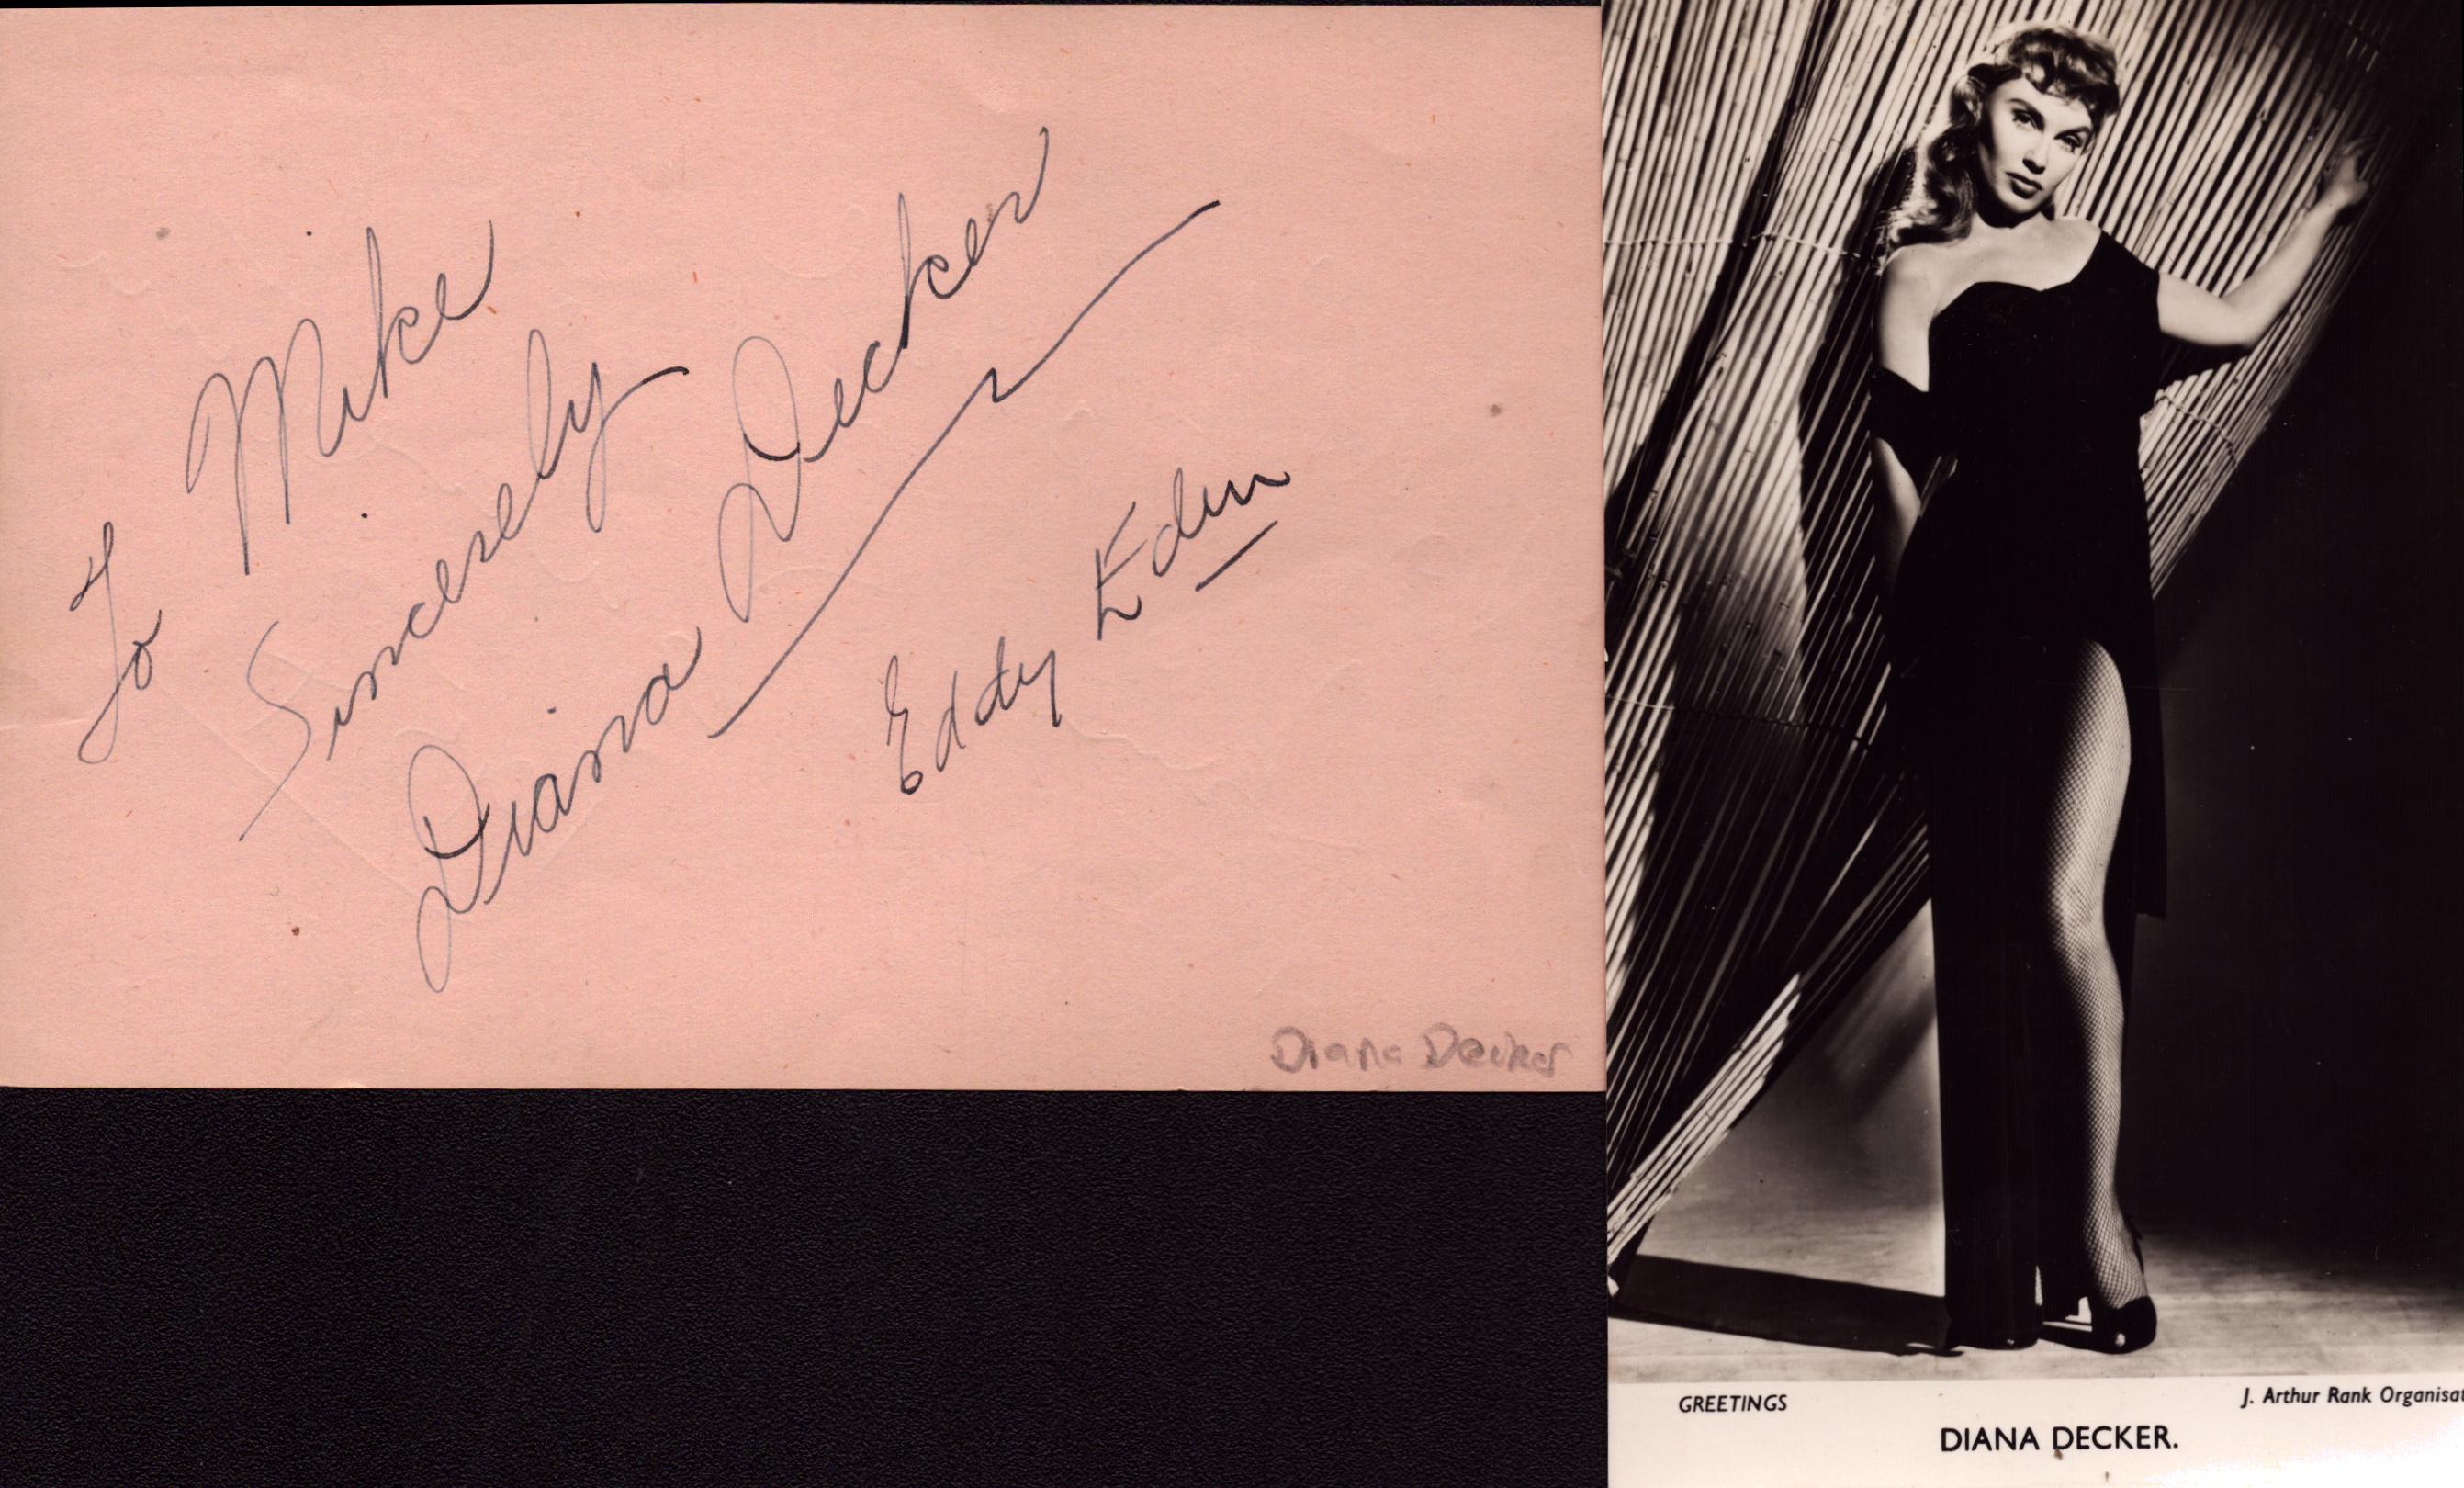 To Mike
Sincerely
Diana Decker
Eddy Eden
Diana Decker
GREETINGS
J. Arthur Rank Organisat
DIANA DECKER.